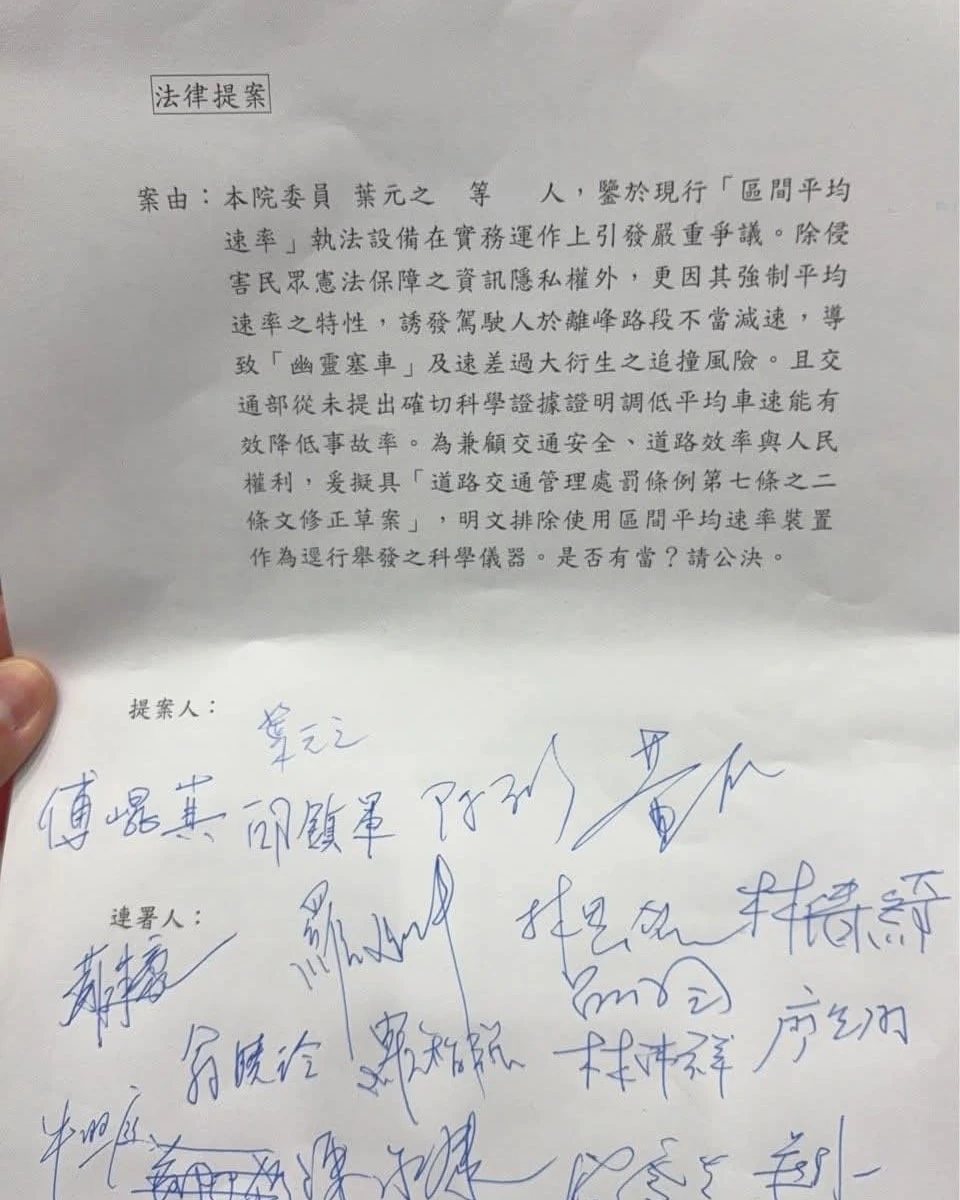 法律提案
案由：本院委員 葉元之 等 人，鑒於現行「區間平均
速率」執法設備在實務運作上引發嚴重爭議。除侵
害民眾憲法保障之資訊隱私權外，更因其強制平均
速率之特性，誘發駕駛人於離峰路段不當減速，導
致「幽靈塞車」及速差過大衍生之追撞風險。且交
通部從未提出確切科學證據證明調低平均車速能有
效降低事故率。為兼顧交通安全、道路效率與人民
權利，爰擬具「道路交通管理處罰條例第七條之二
條文修正草案」，明文排除使用區間平均速率裝置
作為逕行舉發之科學儀器。是否有當？請公決。
提案人：
葉元之
傅崐萁 邱鎮軍
連署人：
林思銘 林德福
翁曉玲 羅智強 林沛祥 廖先翔
牛煦庭 陳永康